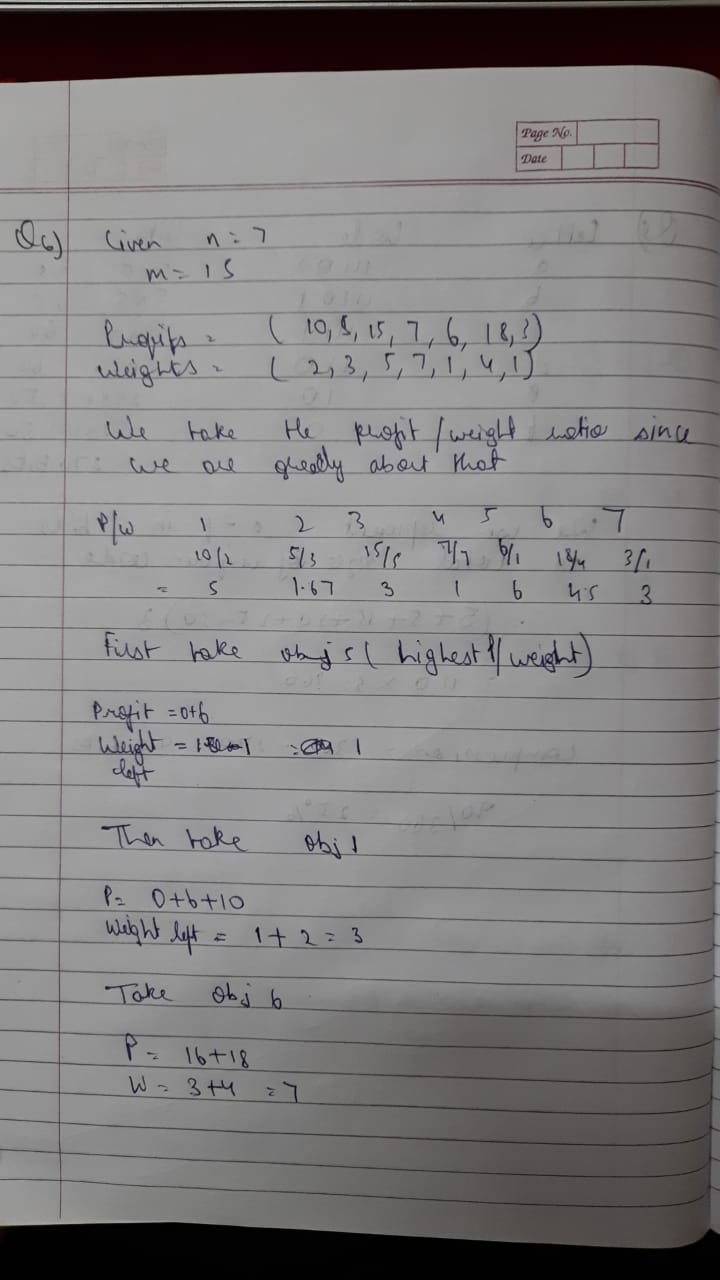 Page No.
Date
Q6) Given n = 7
m = 15
Profits = ( 10, 5, 15, 7, 6, 18, 3)
Weights = ( 2, 3, 5, 7, 1, 4, 1)
We take the profit / weight ratio since
we are greedy about that
P/W 1 2 3 4 5 6 7
10/2 5/3 15/5 7/7 6/1 18/4 3/1
= 5 1.67 3 1 6 4.5 3
First take obj 5 ( highest P/ weight)
Profit = 0+6
Weight = 1
left
Then take obj 1
P = 0+6+10
Weight left = 1 + 2 = 3
Take Obj 6
P = 16+18
W = 3+4 = 7